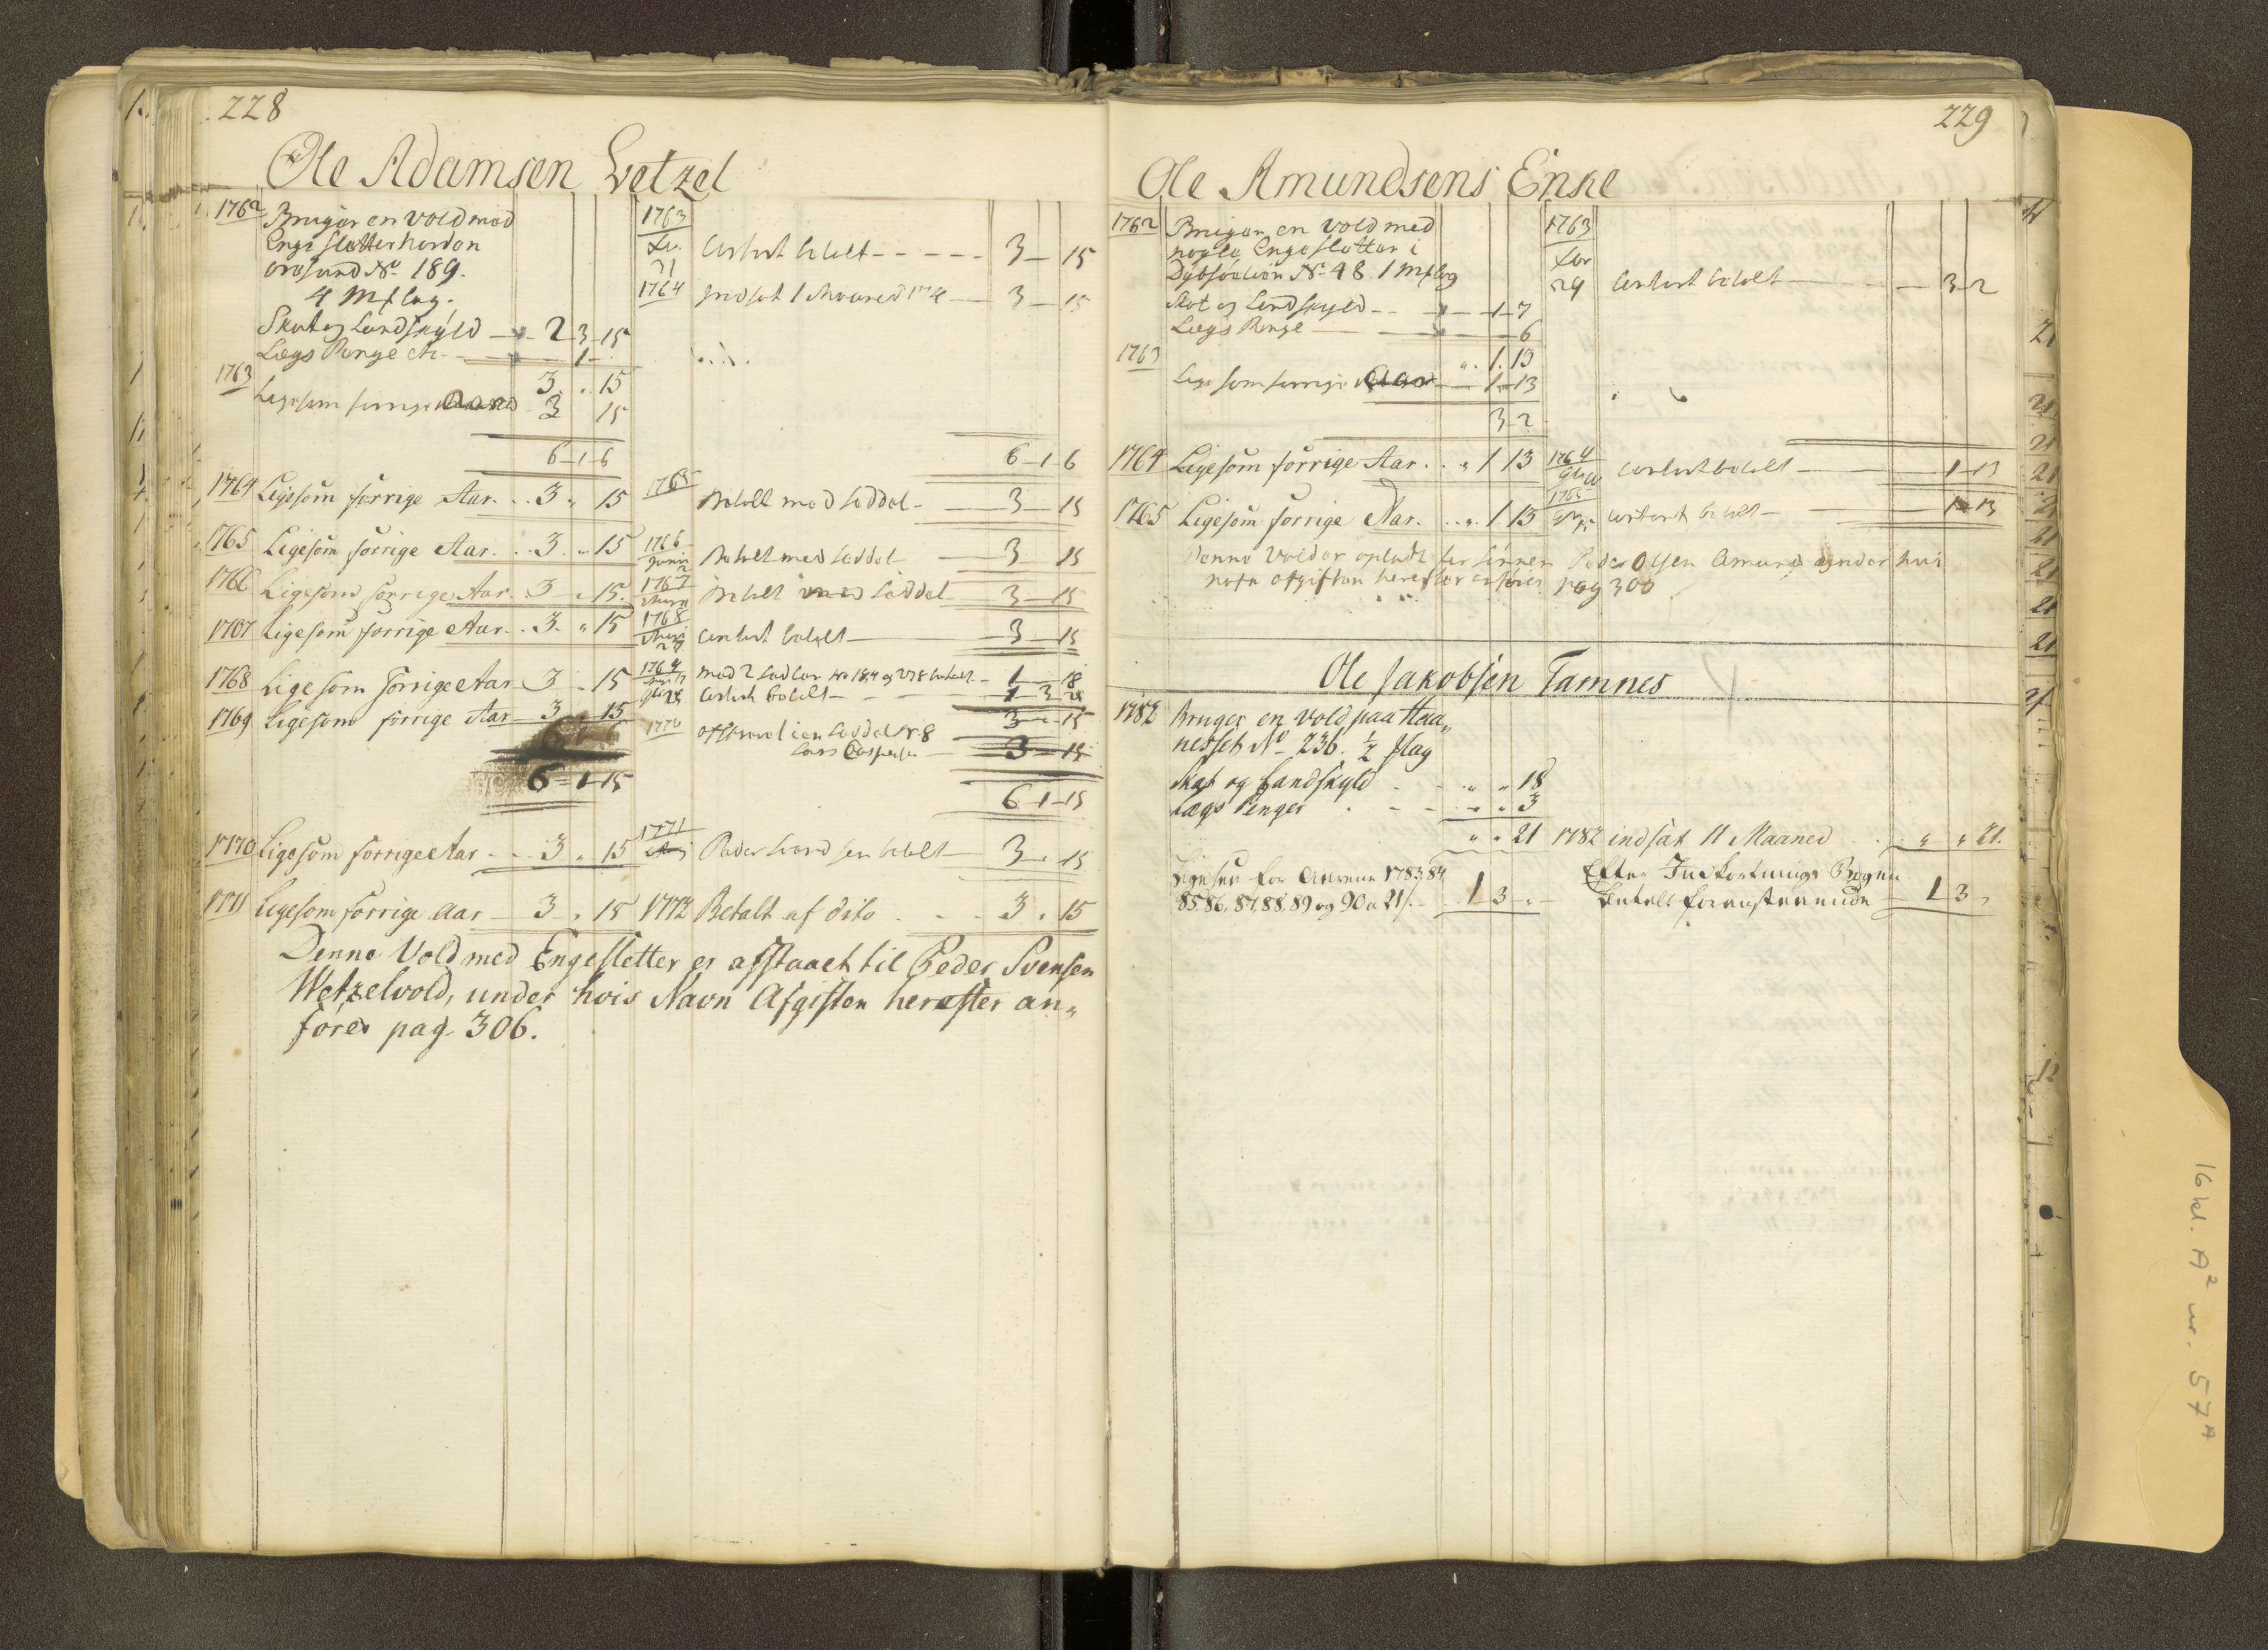 228
Ole Adamsen Wetzel
1762 Bruger en vold med
Enge sletter norden
orosund No 189.
4 Mf lag.
Skat og Landskyld 2 3 15
Lægs Penge 1
3 " 15
1763 Ligesom forrige Aar 3 15
6 1 6
1764 Ligesom forrige Aar. 3 " 15
1765 Ligesom forrige Aar. 3 " 15
1766 Ligesom forrige Aar 3 " 15
1767 Ligesom forrige Aar. 3 " 15
1768 Ligesom forrige Aar 3 " 15
1769 Ligesom forrige Aar 3 15
6 1 15
1770 Ligesom forrige Aar 3 " 15
1771 Ligesom forrige Aar 3 " 15
1763
21 Contant betalt 3 15
1764 Indsat 3 15
6 1 6
1765 Betalt med Seddel 3 15
1766 Junii 2 Betalt med Seddel 3 15
1767 Betalt med Seddel 3 15
1768 Contant betalt 3 15
med 2 Sedler No 184 og 278 betalt 1 18
Contant betalt 1 3 21
3 " 15
1770 Seddel No 8
3 15
6 1 15
1771 Peder betalt 3 " 15
1772 Betalt af dito 3 " 15
Denne Vold med Engesletter er afstaaet til Peder Svensen
Wetzelvold, under hvis Navn Afgiften herefter an„
føres pag. 306.
229
Ole Amundsens Enke
1762 Bruger en vold med
nogle Engesletter i
Dybsøelien No 48. 1 Mf lag
Skat og Landskyld 1 7
Lægs Penge 6
" 1. 13
1763 Ligesom forrige Aar 1 13
3 2
1764 Ligesom forrige Aar. " 1 13
1765 Ligesom forrige Aar. " 1 13
1763
29 Contant betalt 3 2
1764 Contant betalt 1 13
1765 Contant betalt 1 13
Denne Vold er opladt for Sønnen Peder Olsen Amund under hvis
nafn afgiften herefter anføres pag 300
Ole Jakobsen Tamnes
1782 Bruger en Vold paa Haa„
nesset No 236. ½ Mf lag
Skat og Landskyld " " 18
Lægs Penger " " 3
" " 21 1782 indsat 11 Maaned " " 21.
Ligesaa for Aarene 1783, 84
85, 86, 87, 88, 89 og 90 a 21 s. 1 3 "
Efter Indkortnings Bogen
betalt foranstaaende 1 3 "
16 kl. A² nr. 57ᴬ